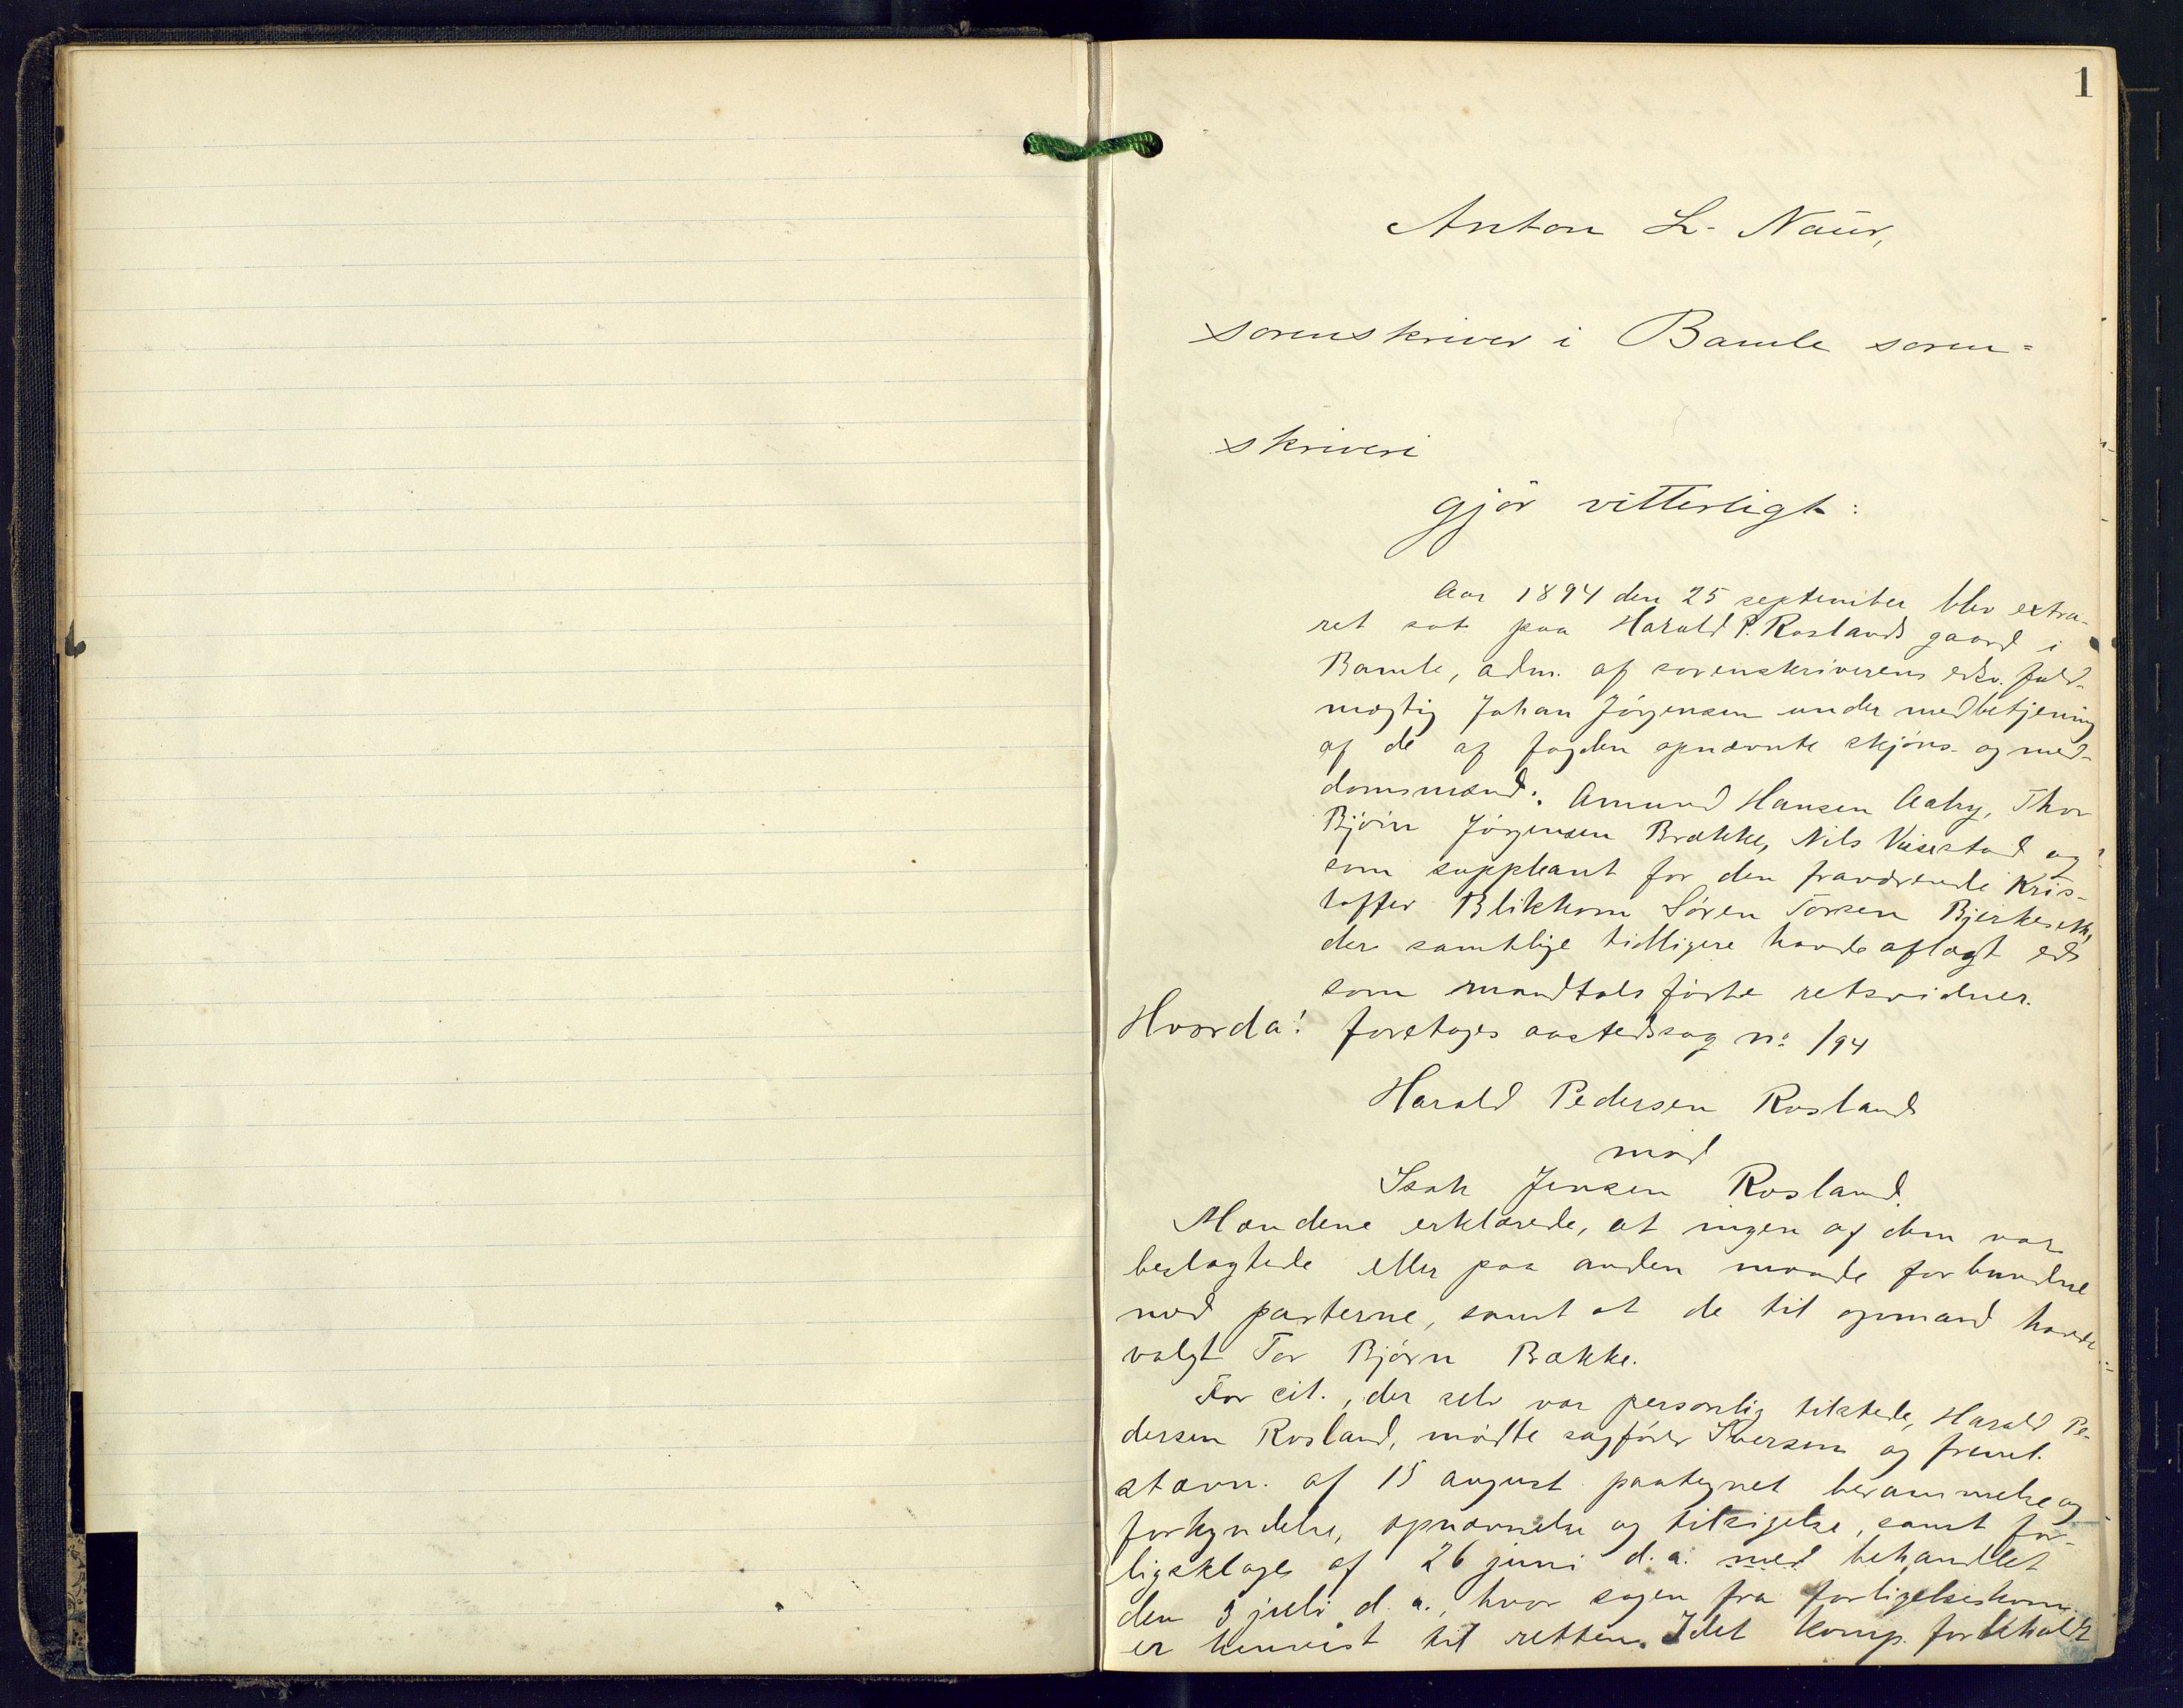 1
Anton L. Naür,
sorenskriver i Bamle soren=
skriveri
gjør vitterligt:
Aar 1894 den 25 september blev extra-
ret sat paa Harald P. Roslands gaard i
Bamle, adm. af sorenskriverens edsv. fuld-
mægtig Johan Jörgensen under medbetjening
af de af fogden opnævnte skjöns- og med-
domsmænd: Amund Hansen Aaby, Thor
Björn Jörgensen Brække, Nils Vissestad og
som suppleant for den fraværende Kris-
toffer Blikkom Sören Torsen Bjerkesett,
der samtlige tidligere havde aflagt ed
som mandtalsförte retsvidner.
Hvorda! foretages aastedssag no /94
Harald Pedersen Rosland
mod
Isak Jensen Rosland.
Mændene erklærede, at ingen af dem var
beslægtede eller paa anden maade forbundne
med parterne, samt at de til opmand havde
valgt Tor Björn Brække.
For cit., der selv var personlig tilstede, Harald Pe-
dersen Rosland, mödte sagförer Iversen og freml.
stævn. af 15 august paategnet berammelse og
forkyndelse, opnævnelse og tilsigelse, samt for-
ligsklage af 26 juni d. a. med behandlet
den 3 juli d. a., hvor sagen fra forligelseskom.
er henvist til retten. Idet komp. forbeholdt